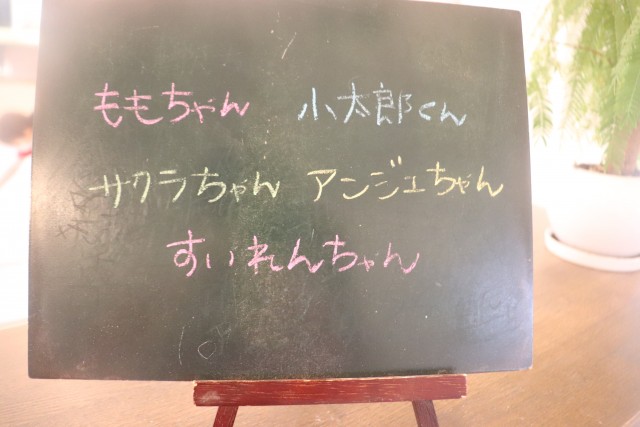 ももちゃん 小太郎くん
サクラちゃん アンジェちゃん
すいれんちゃん